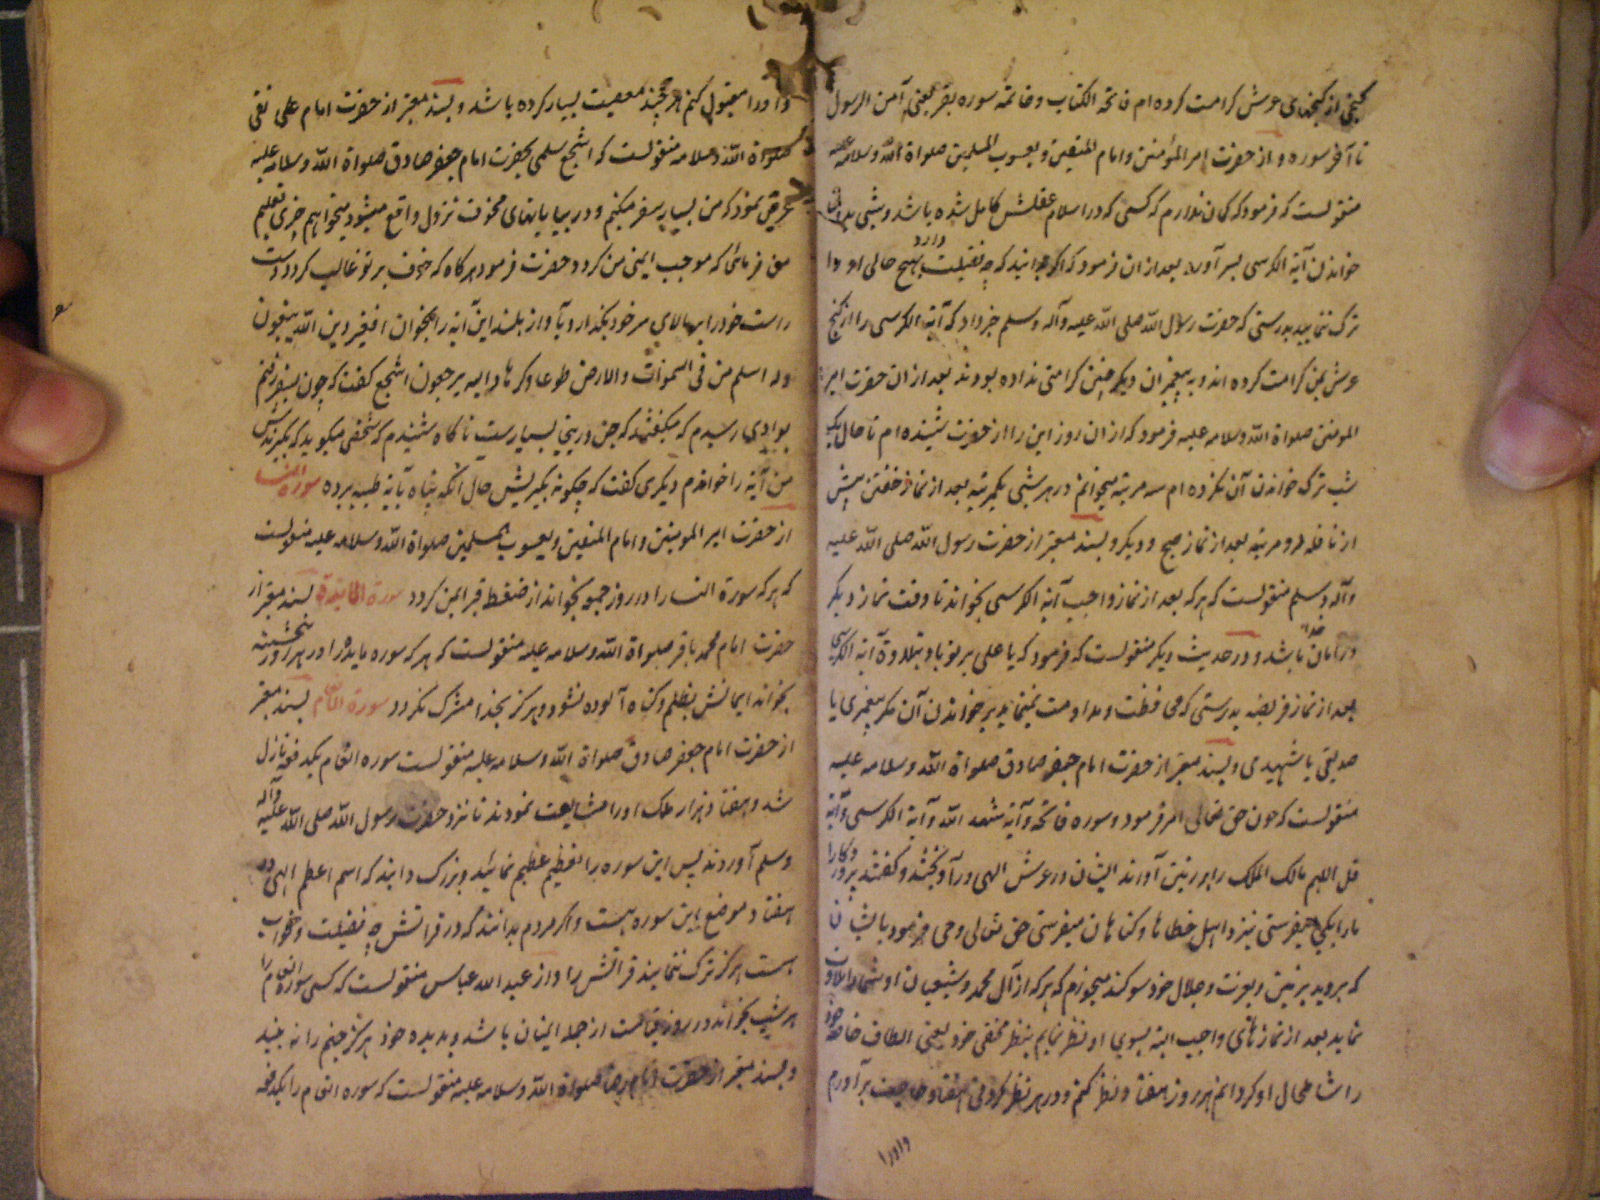 گنجی از گنجهای عرش کرامت کرده ام فاتحة الکتاب و خاتمه سوره بقر یعنی آمن الرسول
تا آخر سوره و از حضرت امیر المؤمنین و امام المتقین و یعسوب المسلمین صلواة الله و سلامه علیه
منقولست که فرمود که گمان ندارم که کسی که در اسلام عقلش کامل شده باشد و شبی بدون
خواندن آیة الکرسی بسر آورد بعد از ان فرمود که اگر بدانید که چه فضیلت دارد بهیچ حالی او را
ترک ننمایید بدرستی که حضرت رسول الله صلی الله علیه و آله و سلم خبر داد که آیة الکرسی را از گنج
عرش بمن کرامت کرده اند و به پیغمبران دیگر چنین کرامتی نداده بودند بعد از ان حضرت امیر
المومنین صلواة الله و سلامه علیه فرمود که از ان روز این را از حضرت شنیده ام تا حال یک
شب ترک خواندن آن نکرده ام سه مرتبه میخوانم در هر شبی یکمرتبه بعد از نماز خفتن پیش
از نافله و مرتبه بعد از نماز صبح و دیگر و بسند معتبر از حضرت رسول الله صلی الله علیه
و آله و سلم منقولست که هر که بعد از نماز واجب آیة الکرسی بخواند تا وقت نماز دیگر
در امان خدا باشد و در حدیث دیگر منقولست که فرمود که یا علی بر تو باد بتلاوة آیة الکرسی
بعد از نماز فریضه بدرستی که محافظت و مداومت نمینماید بر خواندن آن مگر پیغمبری یا
صدیقی یا شهیدی و بسند معتبر از حضرت امام جعفر صادق صلواة الله و سلامه علیه
منقولست که چون حق تعالی امر فرمود و سوره فاتحه و آیة شهد الله و آیة الکرسی و آیة
قل اللهم مالک الملک را بر زمین آورند ایشان در عرش الهی در آویختند و گفتند پروردگارا
ما را بکجا میفرستی بنزد اهل خطاها و گناهان میفرستی حق تعالی وحی فرمود بایشان
که بروید بزمین و بعزت و جلال خود سوگند میخورم که هر که از آل محمد و شیعیان او شما را تلاوت
نماید بعد از نمازهای واجب البته بسوی او نظر نمایم بنظر مخفی خود یعنی الطاف خاصه خود
را شامل حال او گردانم هر روز هفتاد نظر کنم و در هر نظر کردنی هفتاد حاجت برآورم
و او را
و او را مقبول کنم هر چند معصیت بسیار کرده باشد و بسند معتبر از حضرت امام علی نقی
صلواة الله و سلامه منقولست که اشجع سلمی بحضرت امام جعفر صادق صلواة الله و سلامه علیه
عرض نمود که من بسیار سفر میکنم و در بیابانهای مخوف نزول واقع میشود میخواهم چیزی تعلیم
من فرمائی که موجب ایمنی من گردد حضرت فرمود هرگاه که خوف بر تو غالب گردد دست
راست خود را ببالای سر خود بگذار و بآواز بلند این آیة را بخوان افغیر دین الله یبغون
وله اسلم من فی السموات والارض طوعا وکرها والیه یرجعون اشجع گفت که چون بسفر رفتم
بوادی رسیدم که میگفتند که جن درینجا بسیارست ناگاه شنیدم که شخصی میگوید که بگیریدش
من آیة را خواندم دیگری گفت که چگونه بگیریش حال آنکه پناه بآیة طیبه برده سورة النساء
از حضرت امیر المومنین و امام المتقین و یعسوب المسلمین صلواة الله و سلامه علیه منقولست
که هر که سورة النسا را در روز جمعه بخواند از ضغط قبر ایمن گردد سورة المایدة بسند معتبر از
حضرت امام محمد باقر صلواة الله و سلامه علیه منقولست که هر که سوره مایده را در هر روز پنجشنبه
بخواند ایمانش بظلم و گناه آلوده نشود و هرگز بخدا مشرک نگردد سورة انعام بسند معتبر
از حضرت امام جعفر صادق صلواة الله و سلامه علیه منقولست سوره انعام یکدفعه نازل
شد و هفتاد هزار ملک او را مشایعت نمودند تا نزد حضرت رسول الله صلی الله علیه و آله
و سلم آوردند پس این سوره را تعظیم عظیم نمائید و بزرگ دانید که اسم اعظم الهی در
هفتاد موضع این سوره هست و اگر مردم بدانند که در قرائتش چه فضیلت و ثواب
هست هرگز ترک ننمایند قرائتش را و از عبد الله عباس منقولست که کسی سوره انعام را
هر شب بخواند در روز قیامت از جمله ایمنان باشد و بدیده خود هرگز جهنم را نه بیند
و بسند معتبر از حضرت امام رضا صلواة الله و سلامه علیه منقولست که سوره انعام را یکدفعه